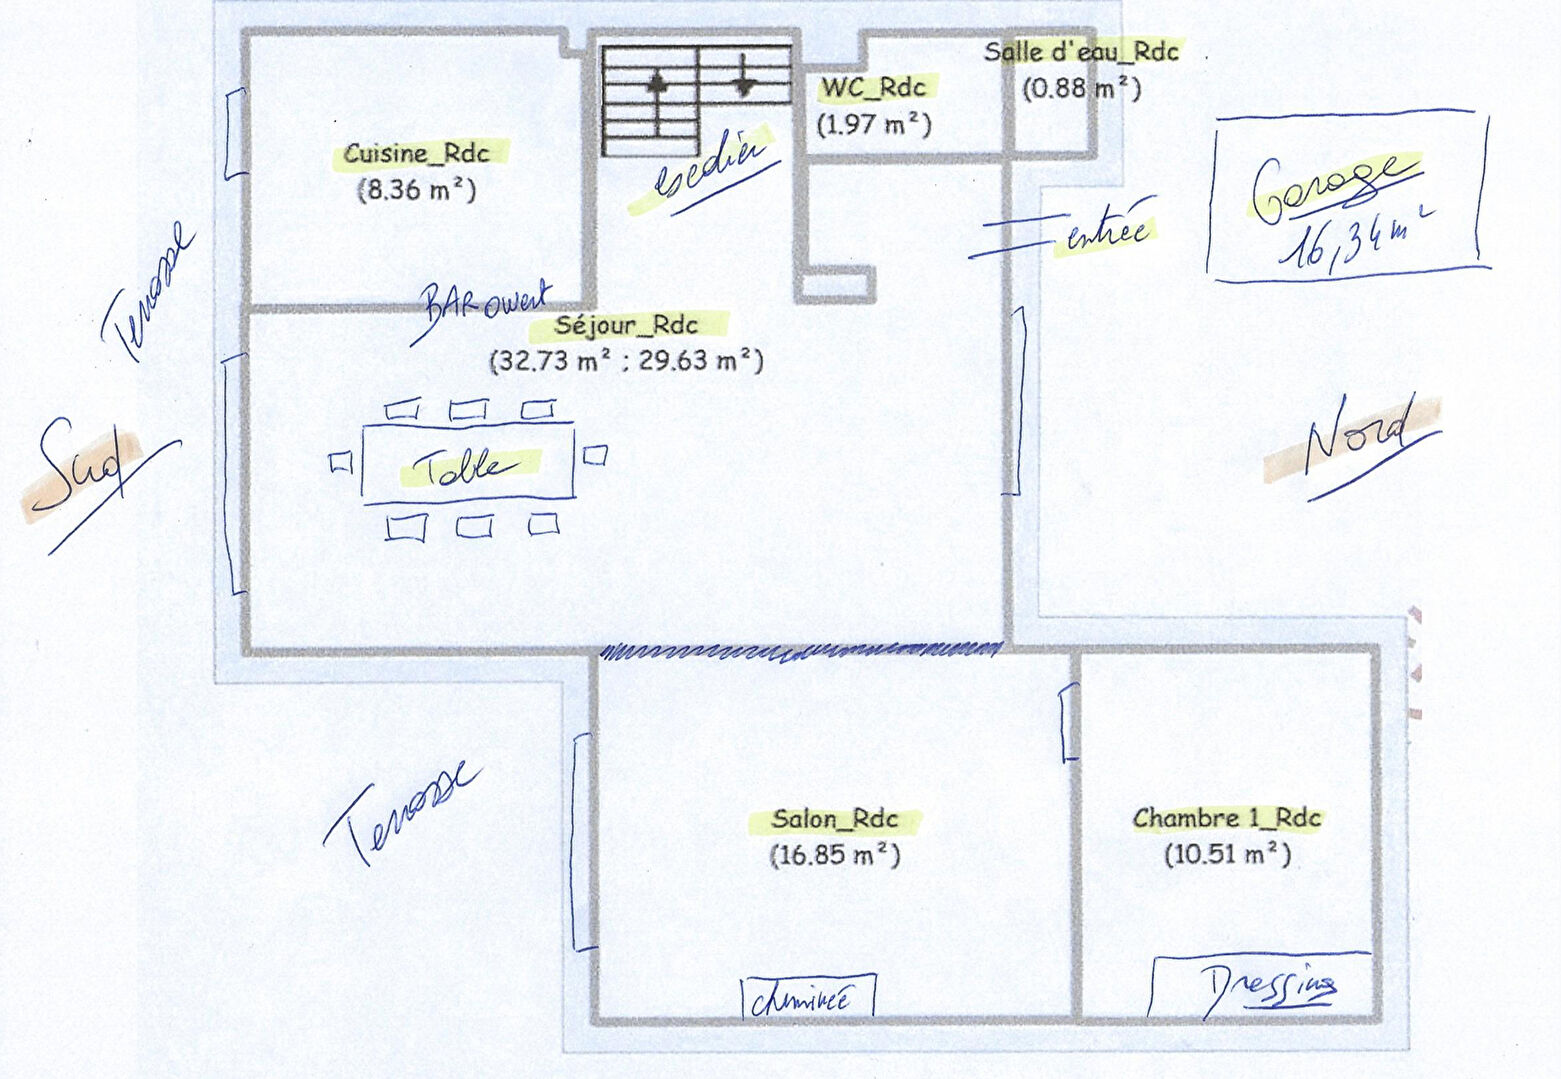 Salle d'eau_Rdc
(0.88 m²)
WC_Rdc
(1.97 m²)
Cuisine_Rdc
(8.36 m²)
escalier
Garage
16,34 m²
entrée
Terrasse
BAR ouvert
Séjour_Rdc
(32.73 m² ; 29.63 m²)
Sud
Table
Nord
Terrasse
Salon_Rdc
(16.85 m²)
Chambre 1_Rdc
(10.51 m²)
cheminée
Dressing